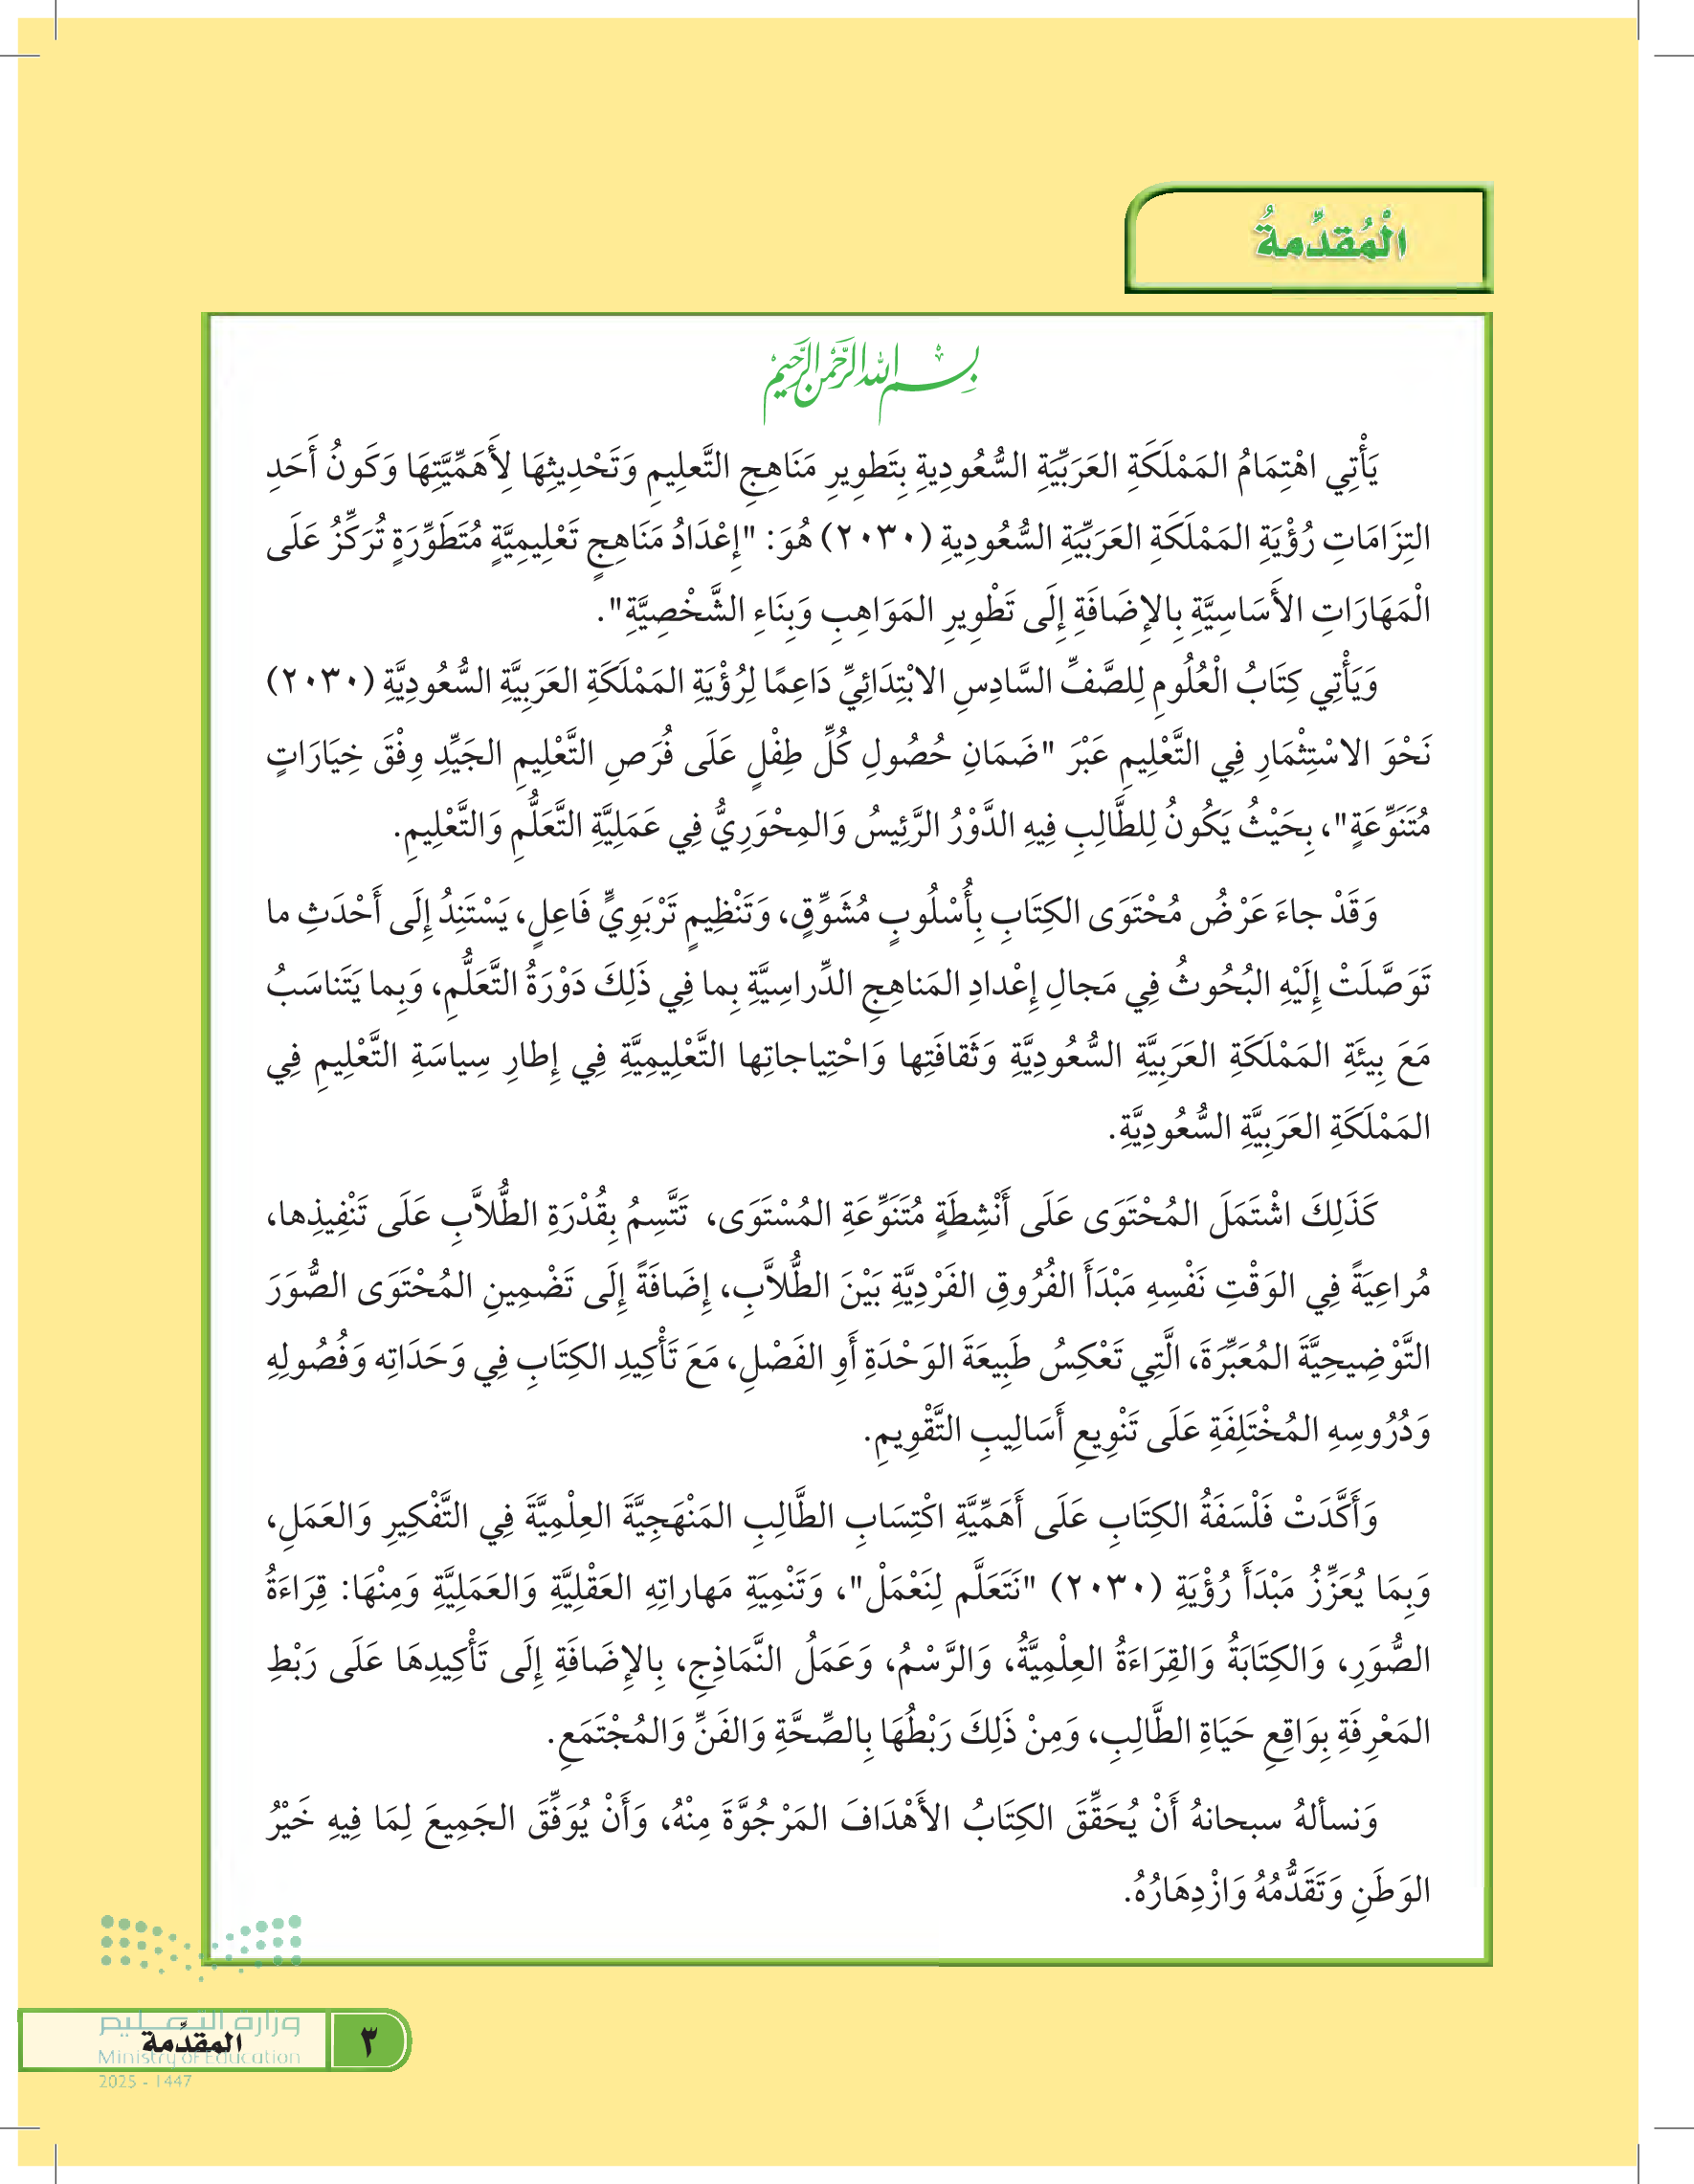 الْمُقدِّمةُ
بِسْمِ اللهِ الرَّحْمٰنِ الرَّحِيمِ
يَأْتِي اهْتِمَامُ المَمْلَكَةِ العَرَبِّيَةِ السُّعُودِيةِ بِتَطوِيرِ مَنَاهِجِ التَّعلِيمِ وَتَحْدِيثِهَا لِأَهَمِّيَّتِهَا وَكَونُ أَحَدِ
التِزَامَاتِ رُؤْيَةِ المَمْلَكَةِ العَرَبِّيَةِ السُّعُودِيةِ (٢٠٣٠) هُوَ: "إِعْدَادُ مَنَاهِجٍ تَعْلِيمِيَّةٍ مُتَطَوِّرَةٍ تُرَكِّزُ عَلَى
الْمَهَارَاتِ الأَسَاسِيَّةِ بِالإِضَافَةِ إِلَى تَطْوِيرِ المَوَاهِبِ وَبِنَاءِ الشَّخْصِيَّةِ".
وَيَأْتِي كِتَابُ الْعُلُومِ لِلصَّفِّ السَّادِسِ الابْتِدَائِيِّ دَاعِمًا لِرُؤْيَةِ المَمْلَكَةِ العَرَبِيَّةِ السُّعُودِيَّةِ (٢٠٣٠)
نَحْوَ الاسْتِثْمَارِ فِي التَّعْلِيمِ عَبْرَ "ضَمَانِ حُصُولِ كُلِّ طِفْلٍ عَلَى فُرَصِ التَّعْلِيمِ الجَيِّدِ وِفْقَ خِيَارَاتٍ
مُتَنَوِّعَةٍ"، بِحَيْثُ يَكُونُ لِلطَّالِبِ فِيهِ الدَّوْرُ الرَّئِيسُ وَالمِحْوَرِيُّ فِي عَمَلِيَّةِ التَّعَلُّمِ وَالتَّعْلِيمِ.
وَقَدْ جاءَ عَرْضُ مُحْتَوَى الكِتَابِ بِأُسْلُوبٍ مُشَوِّقٍ، وَتَنْظِيمٍ تَرْبَوِيٍّ فَاعِلٍ، يَسْتَنِدُ إِلَى أَحْدَثِ ما
تَوَصَّلَتْ إِلَيْهِ البُحُوثُ فِي مَجالِ إِعْدادِ المَناهِجِ الدِّراسِيَّةِ بِما فِي ذَلِكَ دَوْرَةُ التَّعَلُّمِ، وَبِما يَتَناسَبُ
مَعَ بِيئَةِ المَمْلَكَةِ العَرَبِيَّةِ السُّعُودِيَّةِ وَثَقافَتِها وَاحْتِياجاتِها التَّعْلِيمِيَّةِ فِي إِطارِ سِياسَةِ التَّعْلِيمِ فِي
المَمْلَكَةِ العَرَبِيَّةِ السُّعُودِيَّةِ.
كَذَلِكَ اشْتَمَلَ المُحْتَوَى عَلَى أَنْشِطَةٍ مُتَنَوِّعَةِ المُسْتَوَى، تَتَّسِمُ بِقُدْرَةِ الطُّلاَّبِ عَلَى تَنْفِيذِها،
مُراعِيَةً فِي الوَقْتِ نَفْسِهِ مَبْدَأَ الفُرُوقِ الفَرْدِيَّةِ بَيْنَ الطُّلاَّبِ، إِضَافَةً إِلَى تَضْمِينِ المُحْتَوَى الصُّوَرَ
التَّوْضِيحِيَّةَ المُعَبِّرَةَ، الَّتِي تَعْكِسُ طَبِيعَةَ الوَحْدَةِ أَوِ الفَصْلِ، مَعَ تَأْكِيدِ الكِتَابِ فِي وَحَدَاتِه وَفُصُولِهِ
وَدُرُوسِهِ المُخْتَلِفَةِ عَلَى تَنْوِيعِ أَسَالِيبِ التَّقْوِيمِ.
وَأَكَّدَتْ فَلْسَفَةُ الكِتَابِ عَلَى أَهَمِّيَّةِ اكْتِسَابِ الطَّالِبِ المَنْهَجِيَّةَ العِلْمِيَّةَ فِي التَّفْكِيرِ وَالعَمَلِ،
وَبِمَا يُعَزِّزُ مَبْدَأَ رُؤْيَةِ (٢٠٣٠) "نَتَعَلَّم لِنَعْمَلْ"، وَتَنْمِيَةِ مَهاراتِهِ العَقْلِيَّةِ وَالعَمَلِيَّةِ وَمِنْهَا: قِرَاءَةُ
الصُّوَرِ، وَالكِتَابَةُ وَالقِرَاءَةُ العِلْمِيَّةُ، وَالرَّسْمُ، وَعَمَلُ النَّمَاذِجِ، بِالإِضَافَةِ إِلَى تَأْكِيدِهَا عَلَى رَبْطِ
المَعْرِفَةِ بِوَاقِعِ حَيَاةِ الطَّالِبِ، وَمِنْ ذَلِكَ رَبْطُهَا بِالصِّحَّةِ وَالفَنِّ وَالمُجْتَمَعِ.
وَنسألهُ سبحانهُ أَنْ يُحَقِّقَ الكِتَابُ الأَهْدَافَ المَرْجُوَّةَ مِنْهُ، وَأَنْ يُوَفِّقَ الجَمِيعَ لِمَا فِيهِ خَيْرُ
الوَطَنِ وَتَقَدُّمُهُ وَازْدِهَارُهُ.
وزارة التعليم
٣ المقدِّمة
Ministry of Education
2025 - 1447